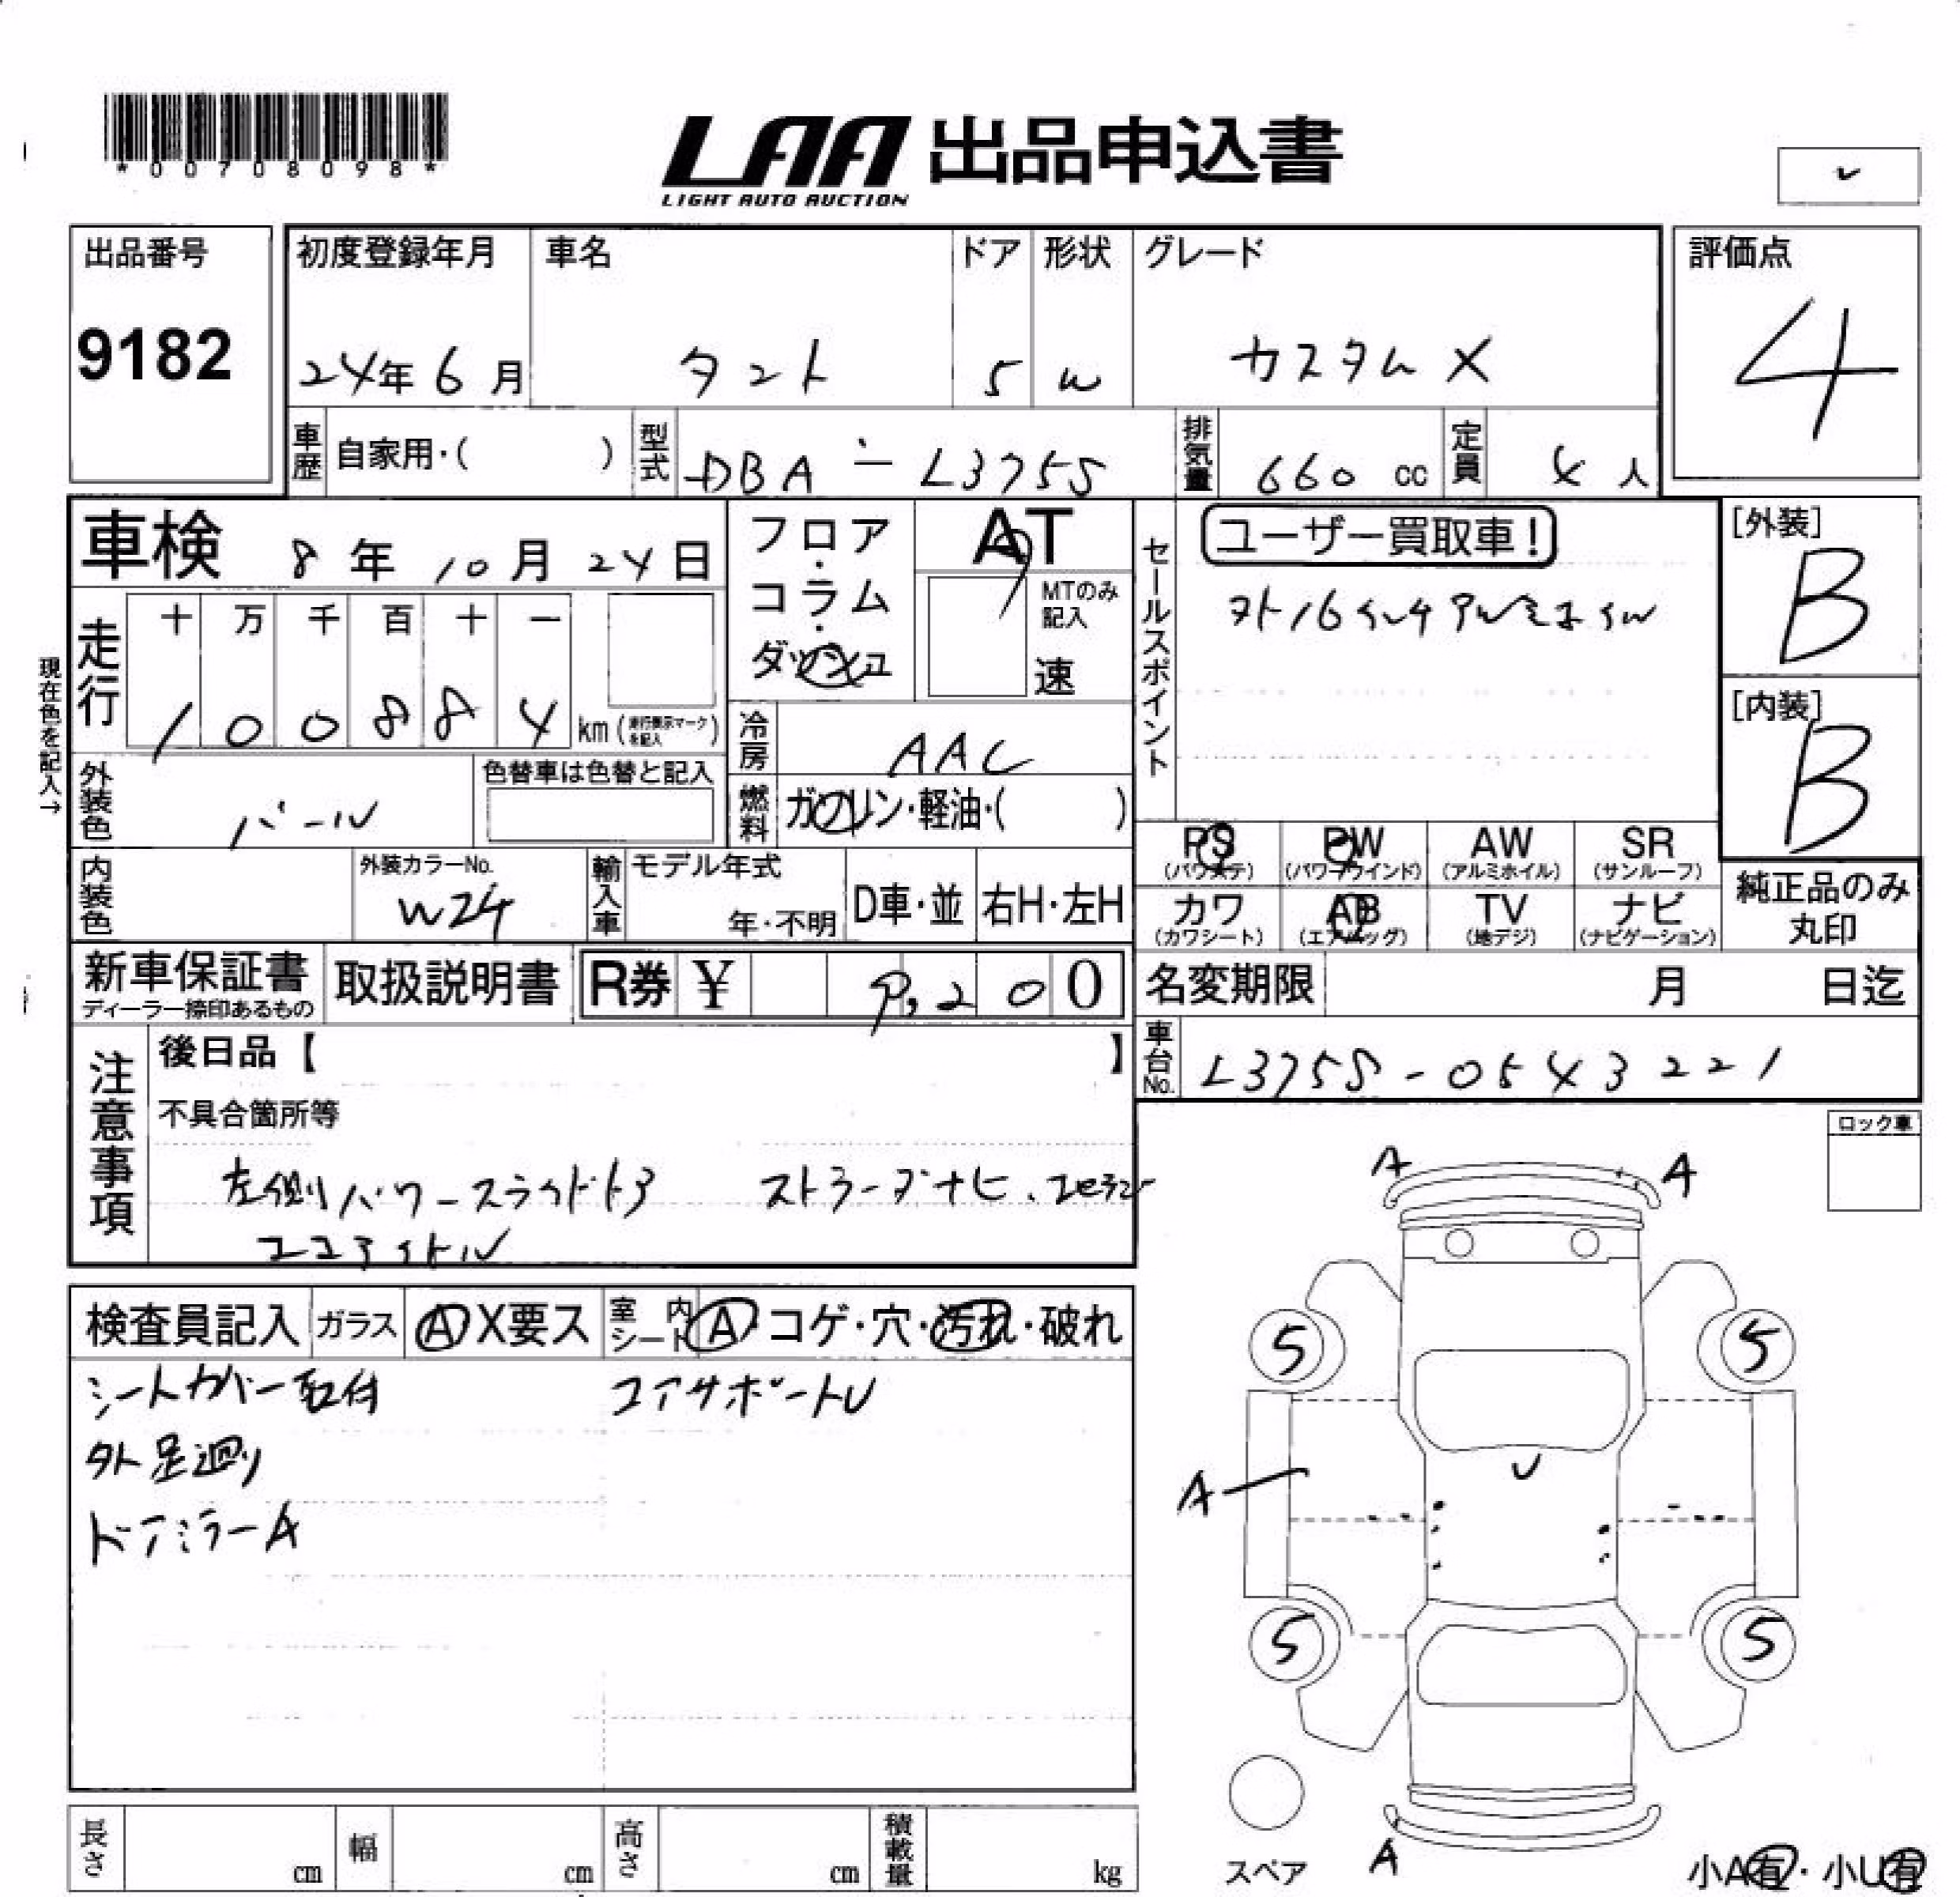 *00708098*
LAA 出品申込書
LIGHT AUTO AUCTION
出品番号
9182
初度登録年月 車名 ドア 形状 グレード
24年 6月 タント 5 W カスタム X
評価点
4
車歴 自家用・( ) 型式 DBA-L375S 排気量 660 cc 定員 4 人
車検 8年 10月 24日
フロア・コラム・ダッシュ
AT
MTのみ記入
速
セールスポイント
ユーザー買取車!
[外装]
B
[内装]
B
現在色を記入→
走行 十 万 千 百 十 一
1 0 0 8 8 4 km (走行表示マークを記入)
冷房 AAC
外装色 パール
色替車は色替と記入
燃料 ガソリン・軽油・( )
PS (パワステ) PW (パワーウインド) AW (アルミホイル) SR (サンルーフ)
カワ (カワシート) AB (エアバッグ) TV (地デジ) ナビ (ナビゲーション)
純正品のみ丸印
内装色
外装カラーNo.
W24
輸入車 モデル年式
年・不明
D車・並 右H・左H
新車保証書
ディーラー捺印あるもの
取扱説明書
R券 ¥ 9,200
名変期限 月 日迄
車台No. L375S-0543221
注意事項
後日品【 】
不具合箇所等
左側パワースライドドア
エコアイドル
ロック車
検査員記入 ガラス A X要ス 室内シート A コゲ・穴・汚れ・破れ
シートカバー取付 コアサポートU
外足廻り
ドアミラーA
A A
5 5
U
A
5 5
A
スペア
小A有・小U有
長さ cm 幅 cm 高さ cm 積載量 kg